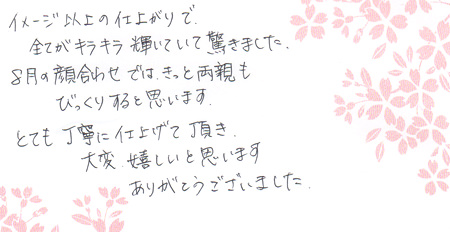 イメージ以上の仕上がりで、
全てがキラキラ輝いていて驚きました。
8月の顔合わせでは、きっと両親も
びっくりすると思います。
とても丁寧に仕上げて頂き、
大変、嬉しいと思います
ありがとうございました。